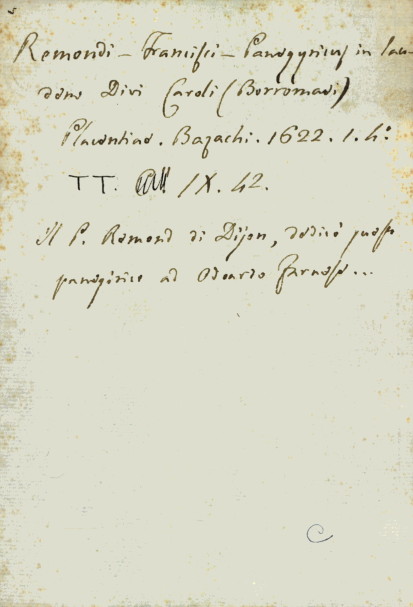 5
Remondi - Francisci - Panegyricus in lau-
dem Divi Caroli (Borromaei)
Placentiae. Bazachi. 1622. 1. 4°
TT. IX. 42.
Il P. Remond di Dijon, dedicò questo
panegirico ad Odoardo Farnese...
C